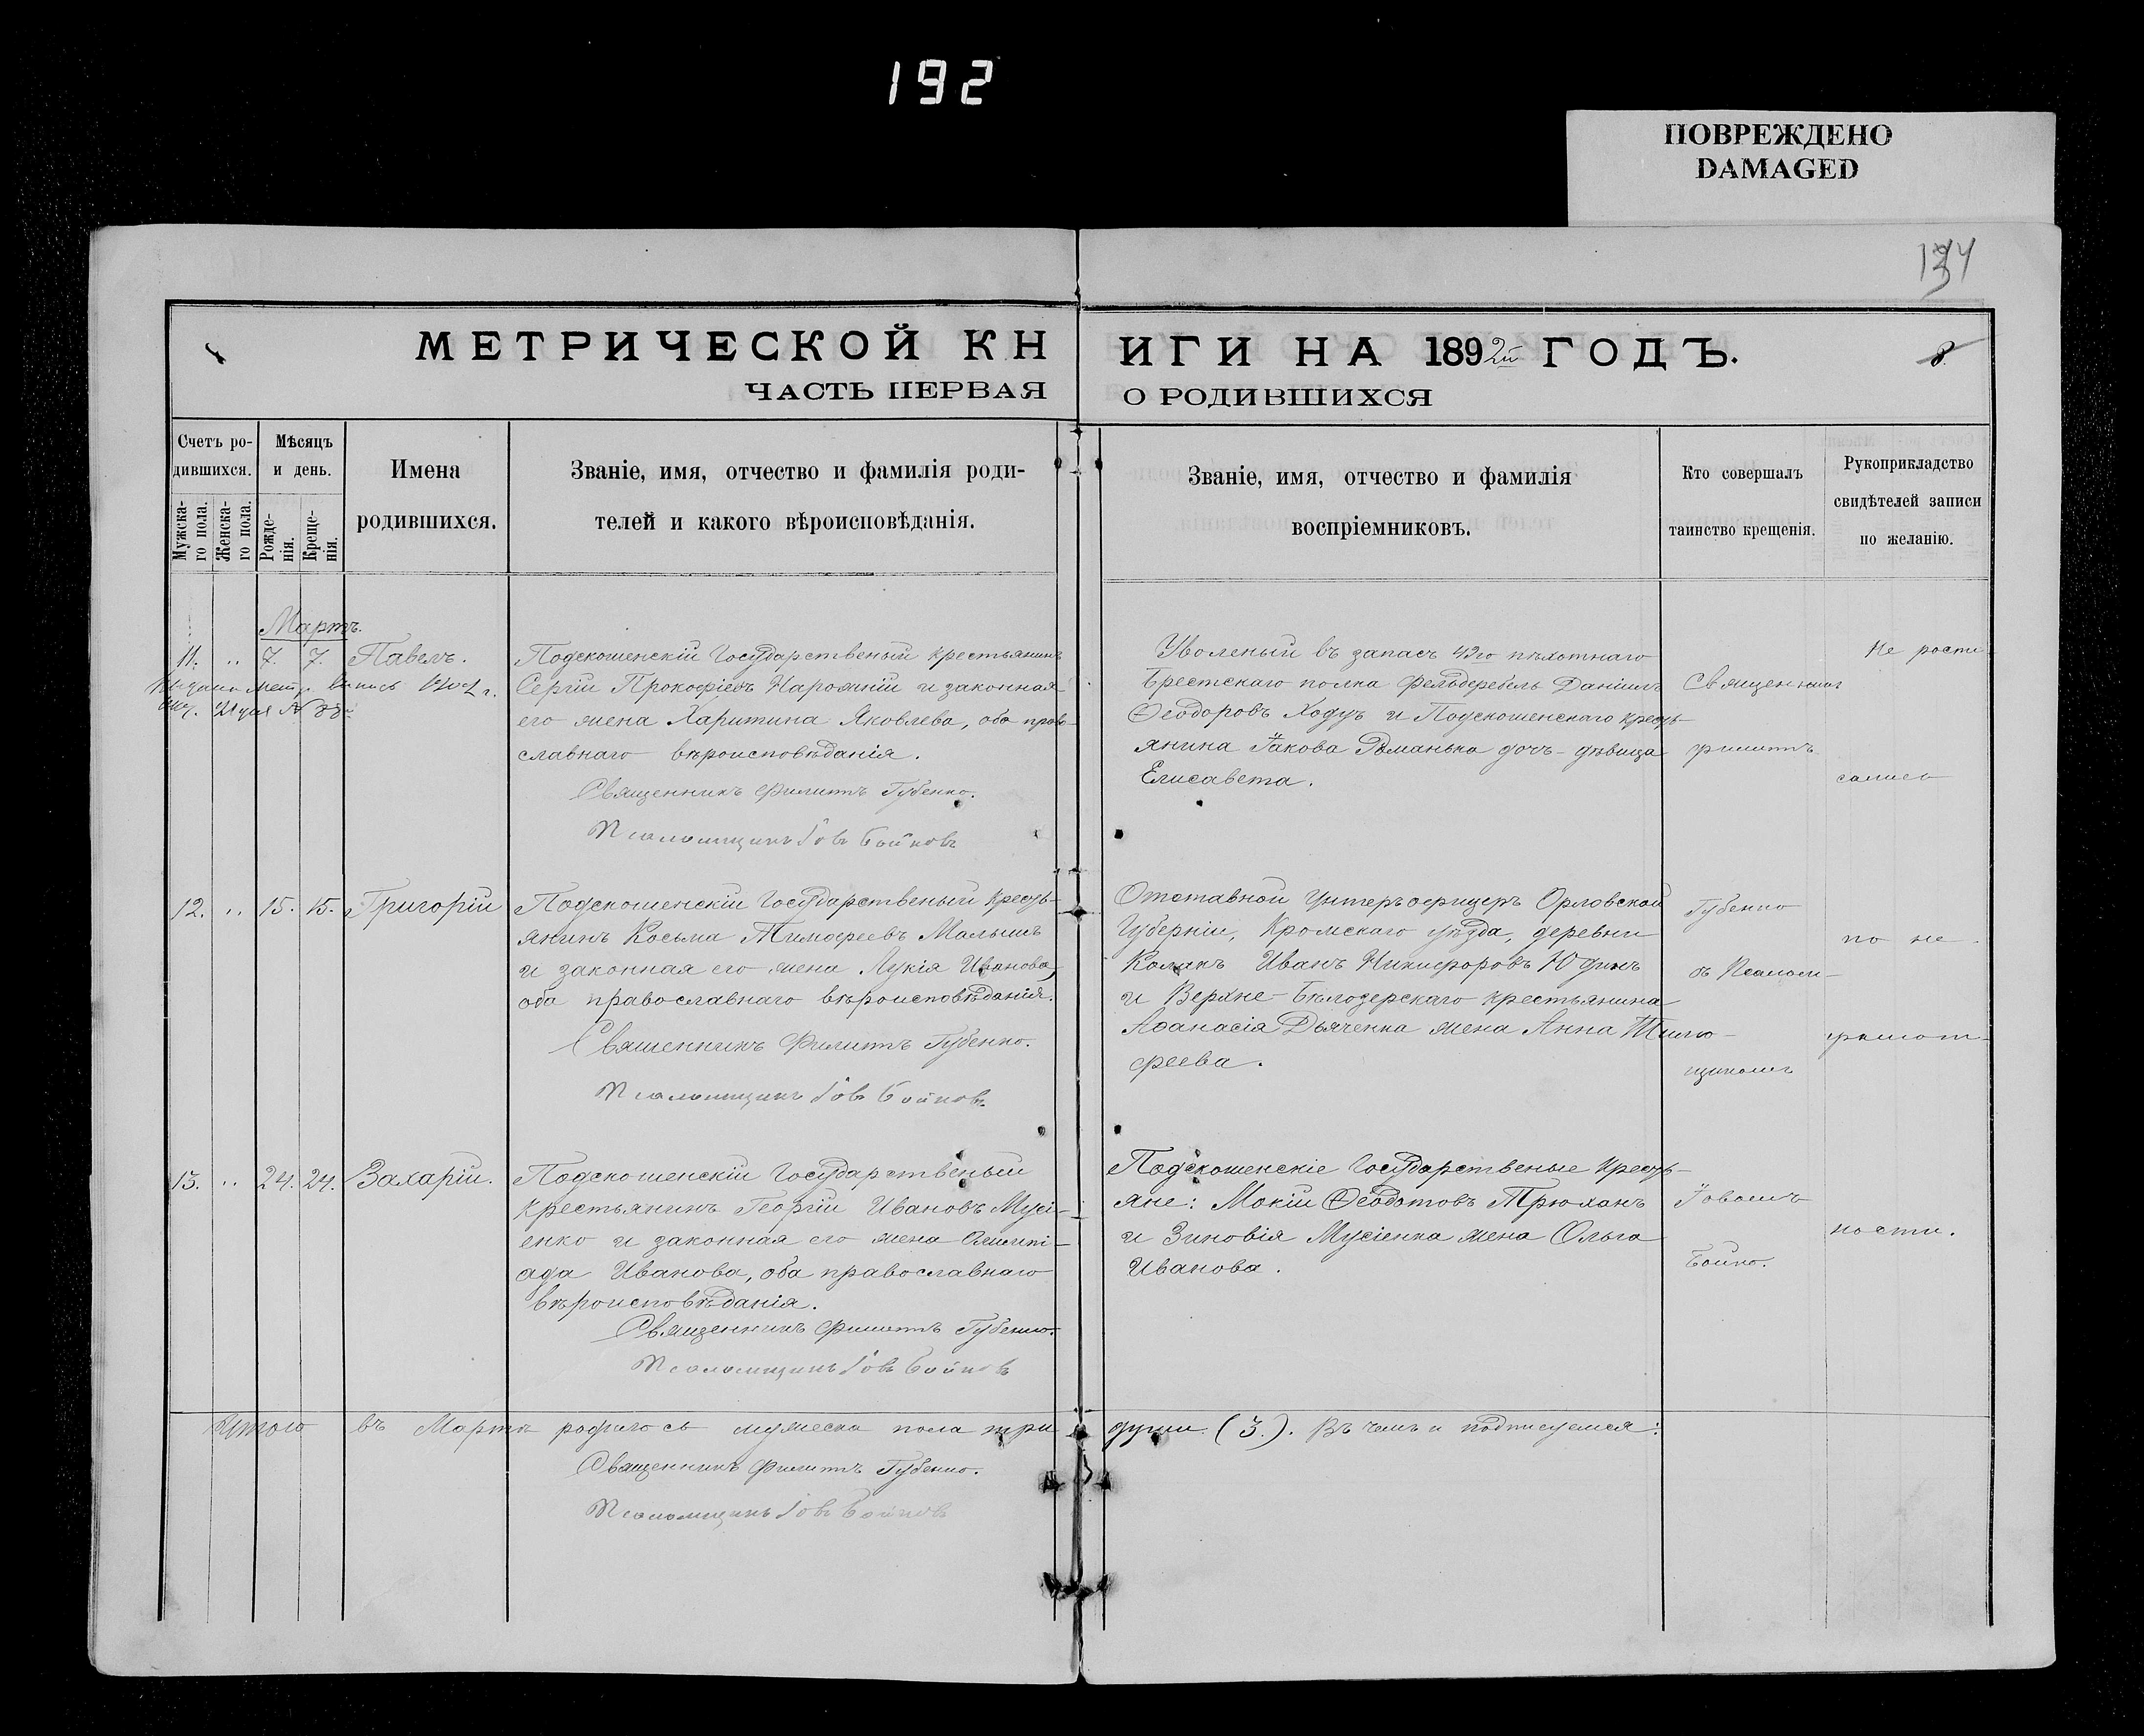 192
ПОВРЕЖДЕНО
DAMAGED
МЕТРИЧЕСКОЙ КНИГИ НА 1892й ГОДЪ.
8
ЧАСТЬ ПЕРВАЯ О РОДИВШИХСЯ
Счетъ ро-
дившихся.
Мужска-
го пола.
Женска-
го пола.
Мѣсяцъ
и день.
Рожде-
нія.
Креще-
нія.
Имена
родившихся.
Званіе, имя, отчество и фамилія роди-
телей и какого вѣроисповѣданія.
Званіе, имя, отчество и фамилія
воспріемниковъ.
Кто совершалъ
таинство крещенія.
Рукоприкладство
свидѣтелей записи
по желанію.
Мартъ.
11. „ 7. 7. Павелъ.
Подскошенскій Государственый крестьянинъ
Сергій Прокофіевъ и законная
его жена Харитина Яковлева, оба право-
славнаго вѣроисповѣданія.
Священникъ Филиппъ Губенко.
Псаломщикъ Іовъ Бойковъ
Уволеный въ запасъ 42го пѣхотнаго
Брестскаго полка Фельдфебель Даніилъ
Ѳеодоровъ Ходусъ и Подскошенскаго кресть-
янина Іакова Романька дочь-дѣвица
Елисавета.
12. „ 15. 15. Григорій
Подскошенскій Государственый кресть-
янинъ Косьма Тимофеевъ Малышъ
и законная его жена Лукія Иванова,
оба православнаго вѣроисповѣданія.
Священникъ Филиппъ Губенко.
Псаломщикъ Іовъ Бойковъ
Отставной унтеръофицеръ Орловской
Губерніи, Кромскаго уѣзда, деревни
Иванъ Никифоровъ Юдинъ
и Верхне-Бѣлозерскаго крестьянина
Аѳанасія Дьяченка жена Анна Тимо-
феева.
13. „ 24. 24. Захарій.
Подскошенскій Государственый
крестьянинъ Георгій Ивановъ Мусі-
енко и законная его жена Олимпі-
ада Иванова, оба православнаго
вѣроисповѣданія.
Священникъ Филиппъ Губенко.
Псаломщикъ Іовъ Бойковъ
Подскошенскіе Государственые кресть-
яне: Мокій Ѳеодотовъ Трюханъ
и Зиновія Мусіенка жена Ольга
Иванова.
Священникъ
Филиппъ
Губенко
съ Псалом-
щикомъ
Іовомъ
Бойко.
Не роспи-
сались
по не-
грамот-
ности.
Итого въ Мартѣ родилось мужеска пола три души (3.). Въ чемъ и подписуемся:
Священникъ Филиппъ Губенко.
Псаломщикъ Іовъ Бойковъ